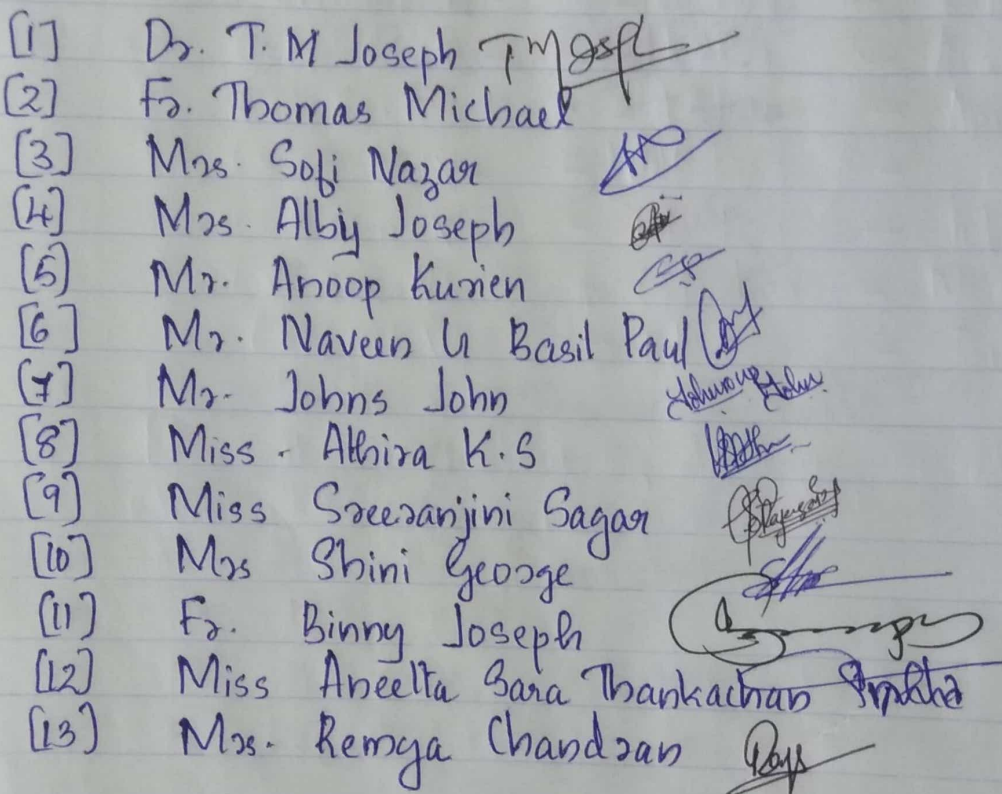 [1] Dr. T. M Joseph TMJosph
[2] Fr. Thomas Michael
[3] Mrs. Sofi Nazar
[4] Mrs. Alby Joseph
[5] Mr. Anoop Kurien
[6] Mr. Naveen G Basil Paul
[7] Mr. Johns John
[8] Miss. Athira K.S
[9] Miss Sreeranjini Sagar
[10] Mrs Shini George
[11] Fr. Binny Joseph
[12] Miss Aneelta Sara Thankachan
[13] Mrs. Remya Chandran